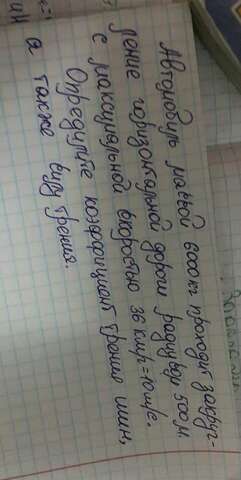 Автомобиль массой 6000 кг проходит закруг-
ление горизонтальной дороги радиусом 500 м.
с максимальной скоростью 36 км/ч = 10 м/с.
Определите коэффициент трения шин,
а также силу трения.